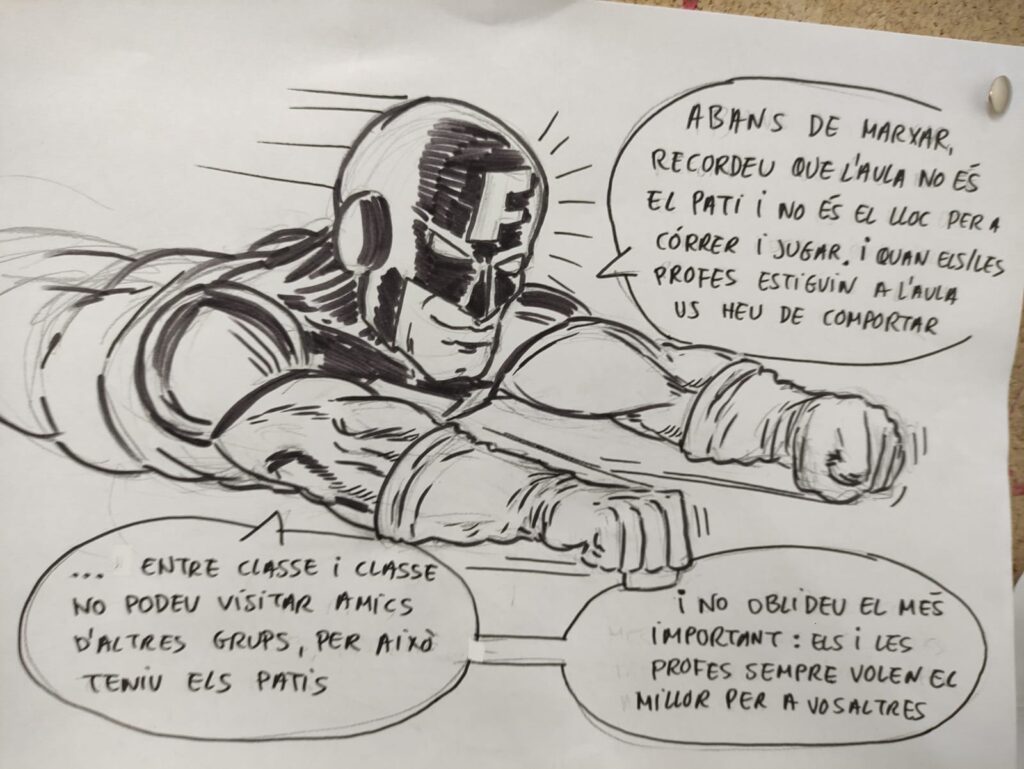 ABANS DE MARXAR,
RECORDEU QUE L'AULA NO ÉS
EL PATI I NO ÉS EL LLOC PER A
CÓRRER I JUGAR. I QUAN ELS/LES
PROFES ESTIGUIN A L'AULA
US HEU DE COMPORTAR
F
... ENTRE CLASSE I CLASSE
NO PODEU VISITAR AMICS
D'ALTRES GRUPS, PER AIXÒ
TENIU ELS PATIS
I NO OBLIDEU EL MÉS
IMPORTANT : ELS I LES
PROFES SEMPRE VOLEN EL
MILLOR PER A VOSALTRES